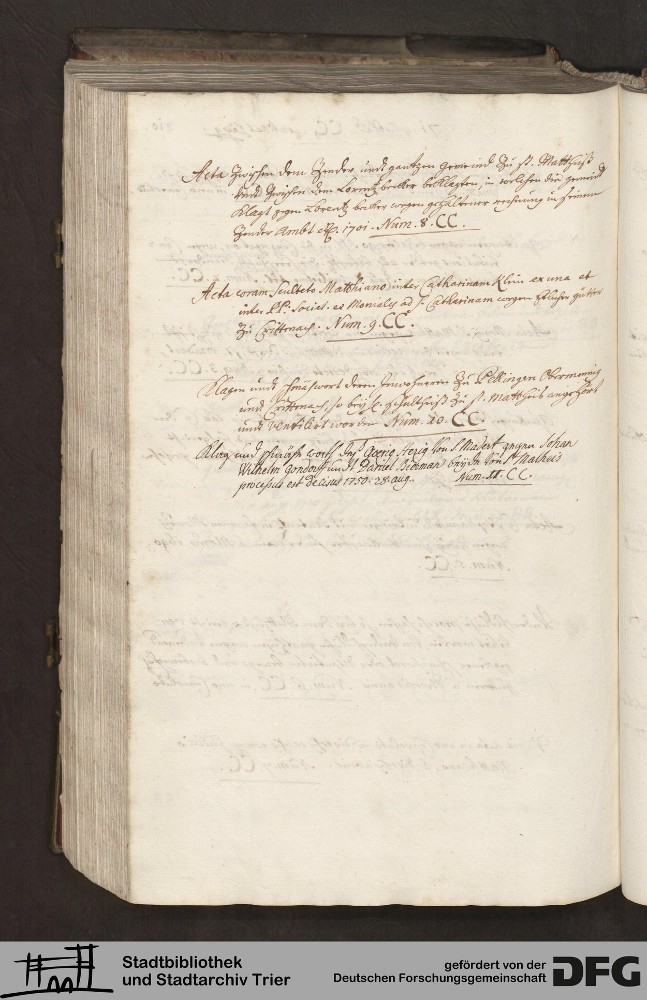 Acta zwischen dem Zender und gantzen gemeind zu st. Matthiß
undt zwischen dem Lorentz becker beklagten, in welchen die gemeind
klagt gegen Lorentz becker wegen gehaltener rechnung in seinem
Zender Ambt 1701. Num. 8. CC.
Acta coram Sculteto Matthiano inter Catharinam Klein ex una et
inter PP. Societ. et Moniales ad S. Catharinam wegen etlicher gütter
zu Crittenach. Num. 9. CC.
Klagen undt deren Inwohneren zu Pellingen Obermennig
und Crittenach, so bey h. schultheiß zu st. Mattheis angehört
undt ventilirt worden Num. 10. CC.
Klag und Georg Herig von S. Madert gegen Johan
Wilhelm gondorff undt Daniel beyde von St Matheis
processus est decisus 1750. 28. aug. Num. 11. CC.
Stadtbibliothek
und Stadtarchiv Trier
gefördert von der
Deutschen Forschungsgemeinschaft
DFG